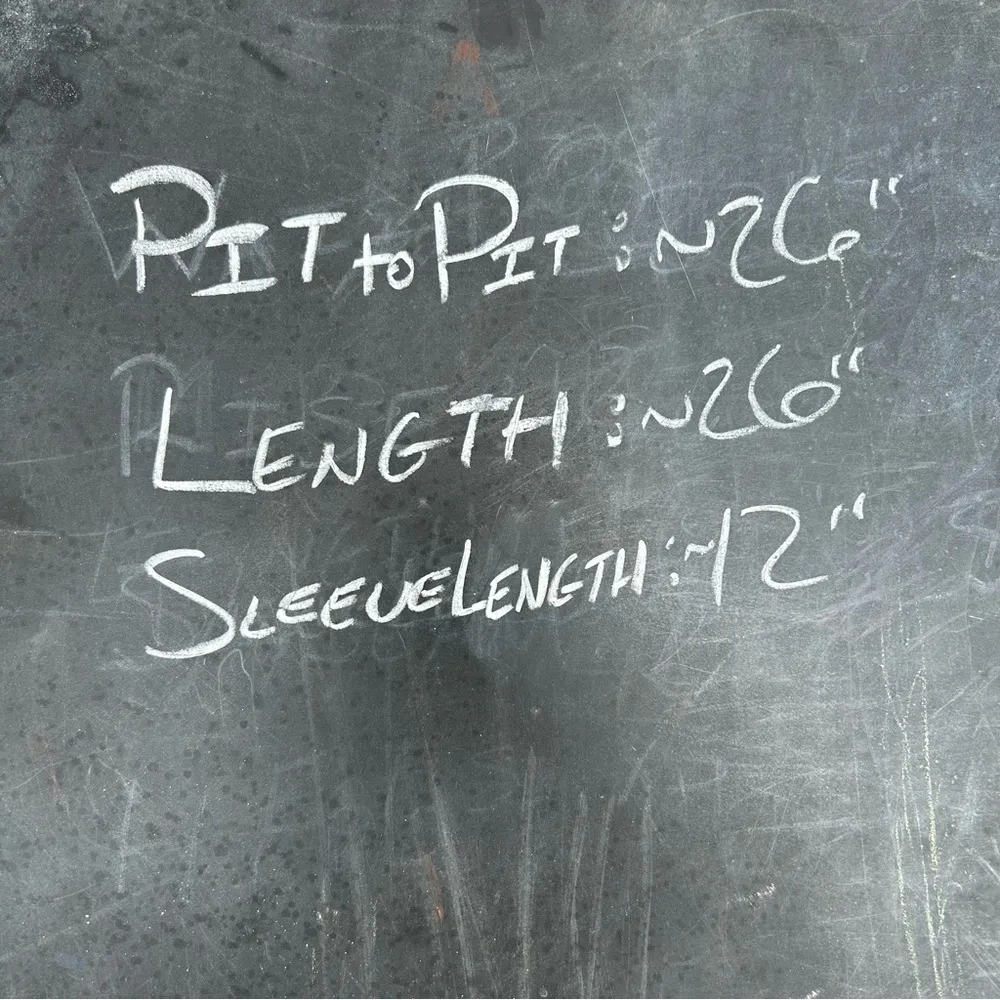 PIT to PIT : ~26"
LENGTH : ~26"
SLEEVE LENGTH : ~12"